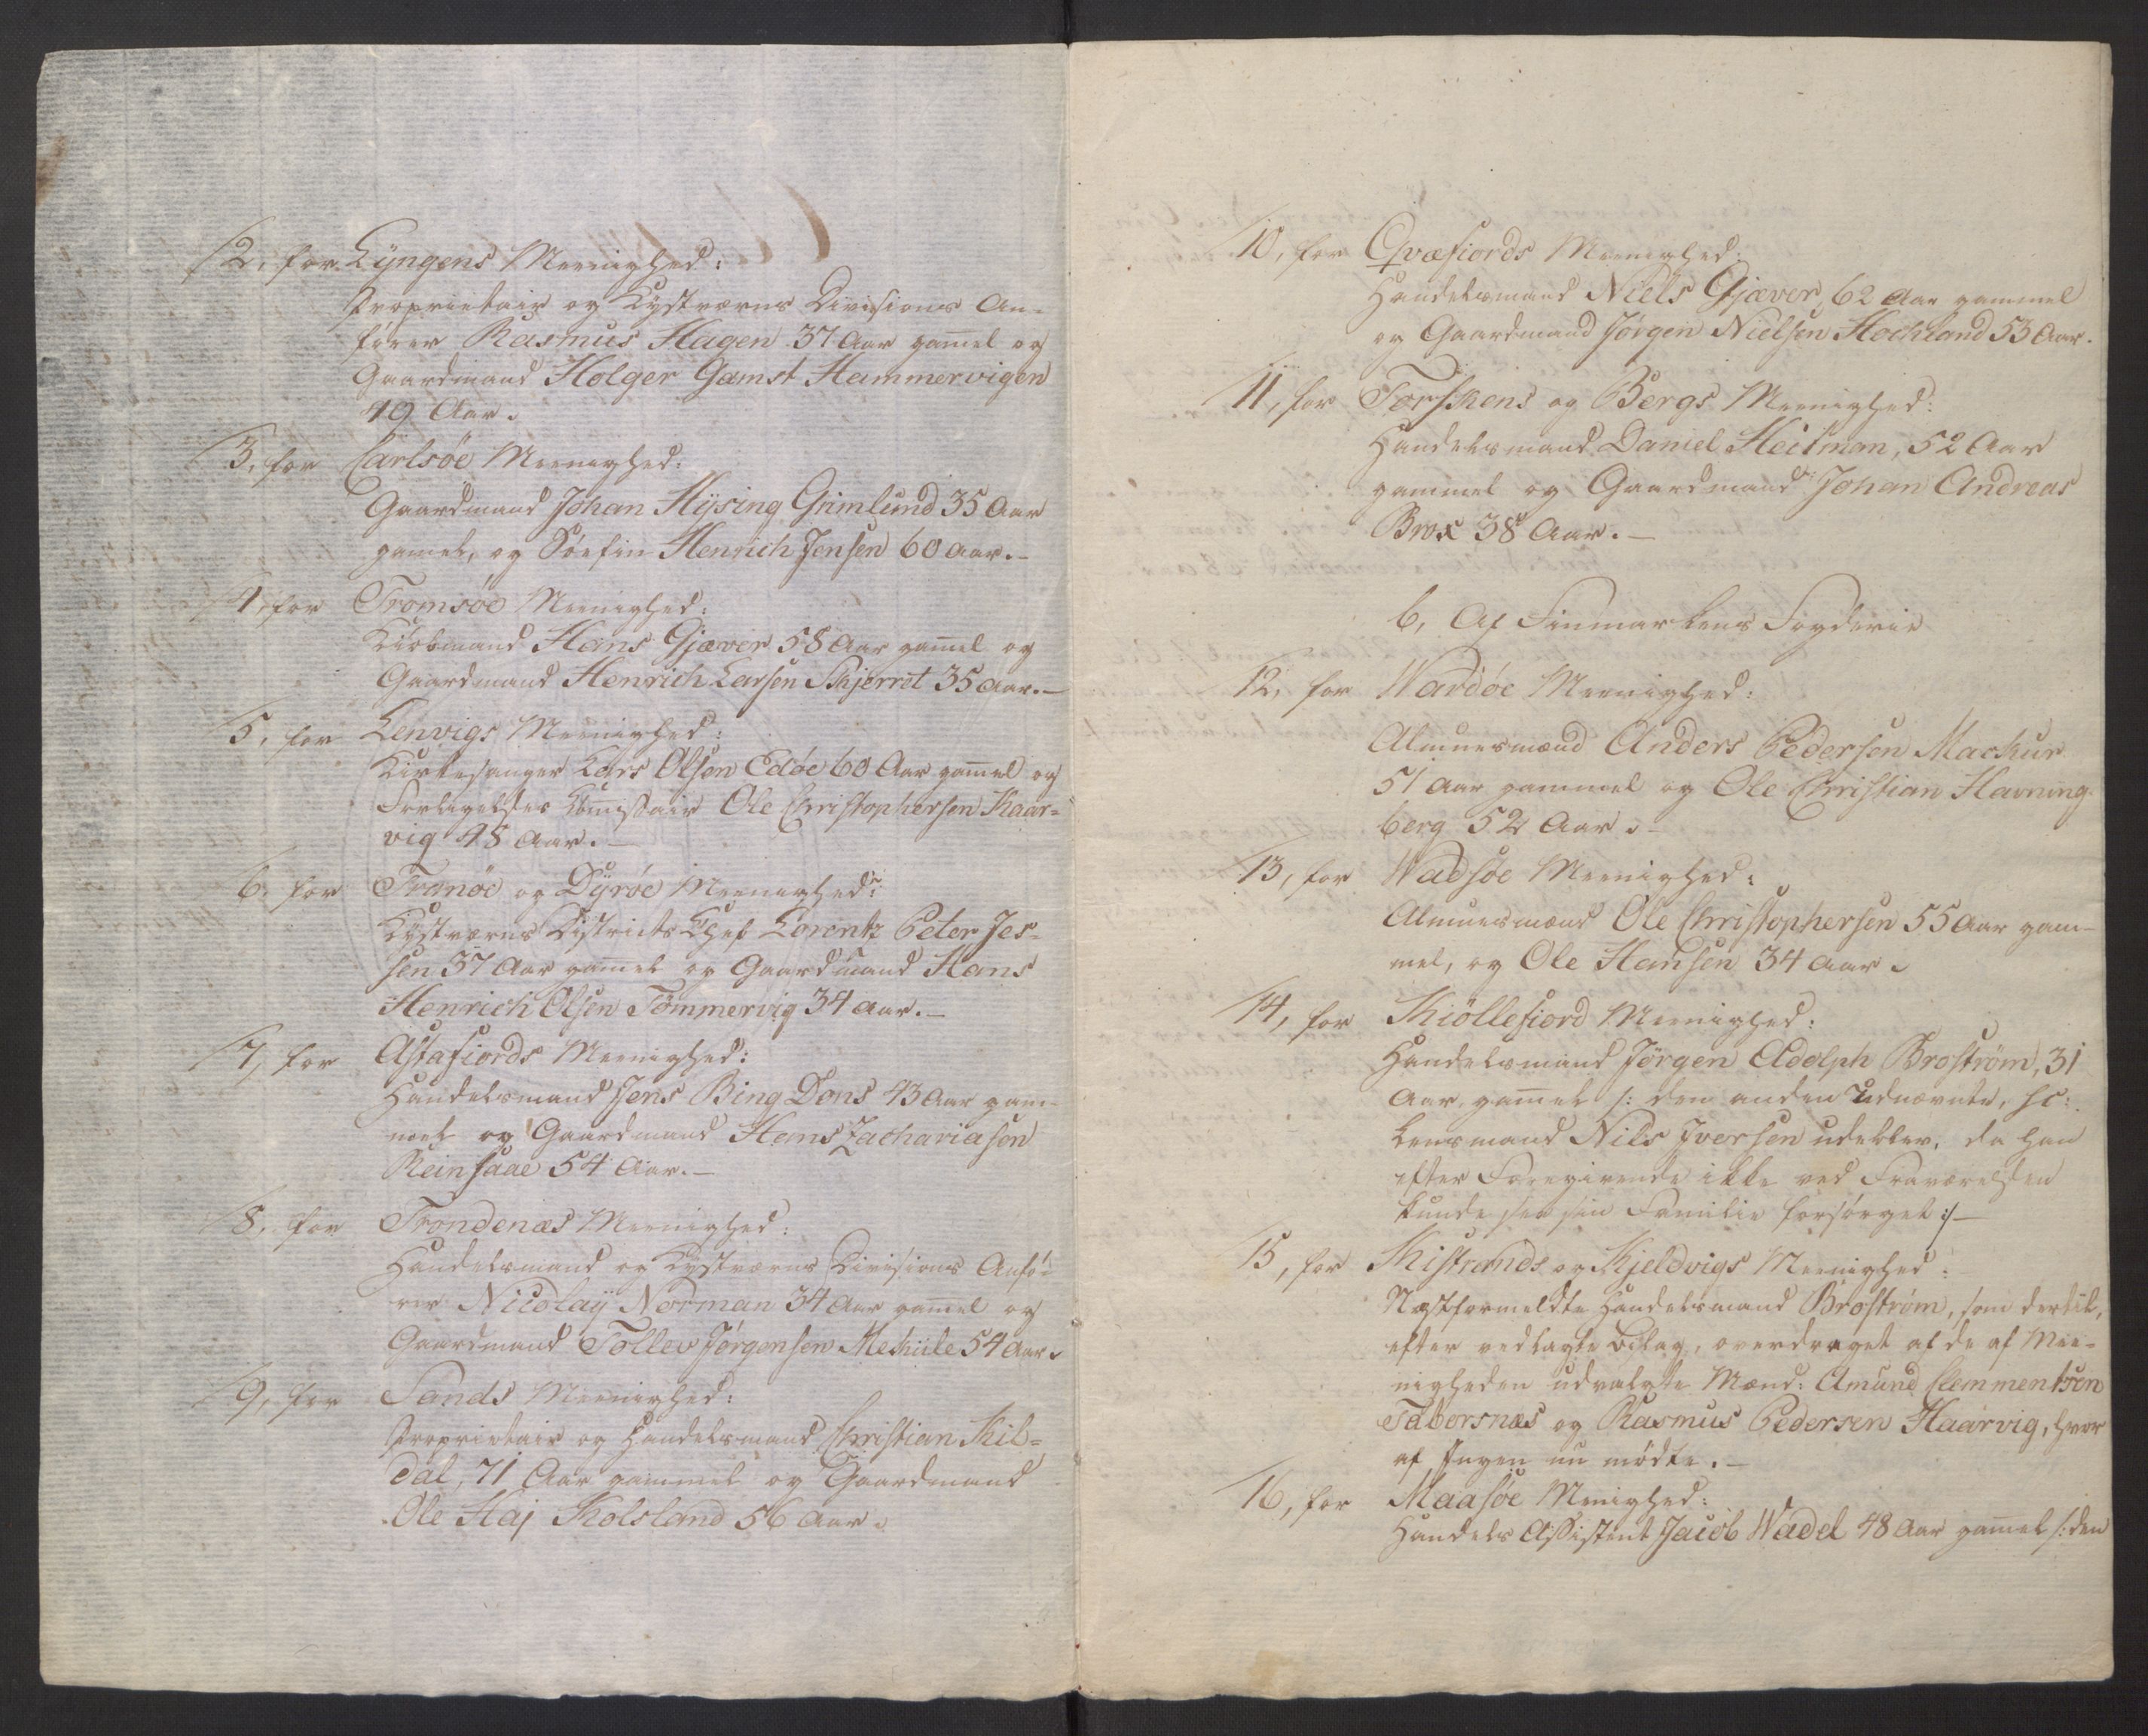 2, for Lyngens Meenighed:
Proprietair og Kystværns Divisions An-
fører Rasmus Hagen 37 Aar gamel og
Gaardmand Holger Gamst Hammervigen
49 Aar.
3, for Carlsøe Meenighed:
Gaardmand Johan Hysing Grimlund 35 Aar
gamel, og Søefin Henrich Jensen 60 Aar. —
4, for Tromsøe Meenighed:
Kiøbmand Hans Gjæver 58 Aar gamel og
Gaardmand Henrich Larsen Skjerret 35 Aar. —
5, for Lenvigs Meenighed:
Kirkesanger Lars Olsen Edøe 60 Aar gamel og
Forligelses Comissair Ole Christophersen Kaar-
vig 48 Aar. —
6, for Tranöe og Dyrøe Meenighed:
Kystværns Districts Chef Lorentz Peter Jes-
sen 37 Aar gamel og Gaardmand Hans
Henrich Olsen Tömmervig 34 Aar. —
7, for Astafiords Meenighed:
Handelsmand Jens Bing Dons 43 Aar gam-
mel og Gaardmand Hans Zachariasen
Reinsaae 54 Aar. —
8, for Trondenæs Meenighed:
Handelsmand og Kystværns Divisions Anfö-
rer Nicolay Norman 34 Aar gamel og
Gaardmand Tollev Jörgensen 54 Aar.
9, for Sands Meenighed:
Proprietair og Handelsmand Christian Kil-
dal, 71 Aar gammel og Gaardmand
Ole Haj Kolsland 56 Aar.
10, for Qvæfiords Meenighed:
Handelsmand Niels Gjæver, 62 Aar gammel
og Gaardmand Jørgen Nielsen Hochland 53 Aar.
11, for Torskens og Bergs Meenighed:
Handelsmand Daniel Heitman, 52 Aar
gammel og Gaardmand Johan Andreas
Brox 38 Aar. —
b, Af Finmarkens Fogderie
12, for Wardöe Meenighed:
Almuesmænd Anders Pedersen Mackur
51 Aar gammel og Ole Christian Havning-
berg 52 Aar. —
13, for Wadsöe Meenighed:
Almuesmænd Ole Christophersen 55 Aar gam-
mel, og Ole Hansen 34 Aar.
14, for Kiöllefiord Meenighed:
Handelsmand Jörgen Adolph Broström, 31
Aar gamel /: den anden Udnævnte, sc:
Lensmand Nils Iversen udebler, da han
efter Foregivende ikke ved Fraværelsen
kunde see sin Familie forsörget :/ —
15, for Kistrands og Kjeldvigs Meenighed:
Næstformeldte Handelsmand Broström, som dertil,
efter vedlagte Bilag, overdraget af de af Mee-
nigheden udvalgte Mænd: Amund Clemmentsen
Taborsnæs og Rasmus Pedersen Haarvig, hvor
af Ingen nu mödte. —
16, for Maasöe Menighed:
Handels Assistent Jacob Wadel 48 Aar gamel /: den